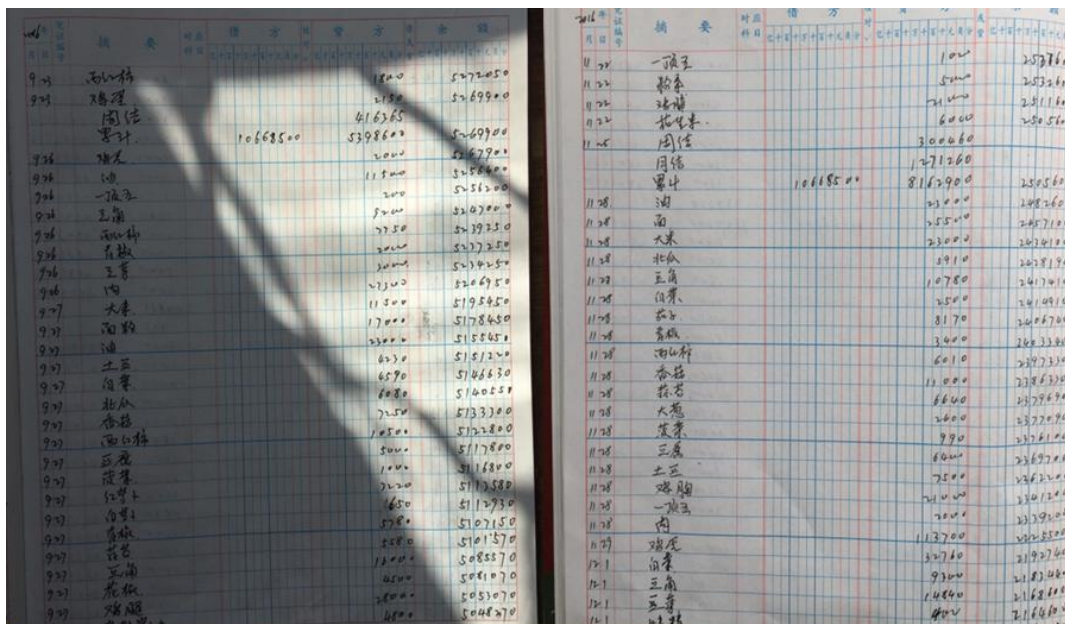 2016年 凭证编号 摘要 对应科目 借方 贷方 余额
月 日
9 23 西红柿 1800 5272050
9 23 鸡蛋 2150 5269900
周结 416365
累计 10668500 5398600 5269900
9 26 2000 5267900
9 26 油 11500 5256400
9 26 一顶玉 200 5256200
9 26 豆角 9200 5247000
9 26 西红柿 7750 5239250
9 26 青椒 2000 5237250
9 26 豆芽 3000 5234250
9 26 肉 27300 5206950
9 27 大米 11500 5195450
9 27 面 17000 5178450
9 27 油 23000 5155450
9 27 土豆 4230 5151220
9 27 白菜 4590 5146630
9 27 北瓜 6080 5140550
9 27 香菇 7250 5133300
9 27 西红柿 10500 5122800
9 27 豆腐 5000 5117800
9 27 菠菜 1000 5116800
9 27 红萝卜 3220 5113580
9 27 白萝卜 650 5112930
9 27 青椒 5780 5107150
9 27 蒜苔 5580 5101570
9 27 豆角 16000 5085570
9 27 花椒 4500 5081070
9 27 鸡胸 28000 5053070
9 27 4800 5048270
2016年 凭证编号 摘要 对应科目 借方
月 日
11 22 一顶玉 1000 253860
11 22 5000 253260
11 22 21000 251160
11 22 花生米 6000 250560
11 25 周结 300460
月结 1271260
累计 10668500 8162900 250560
11 28 油 23000 248260
11 28 面 25500 245710
11 28 大米 23000 243410
11 28 北瓜 5910 243819
11 28 豆角 10780 241741
11 28 白菜 2500 241491
11 28 茄子 8170 240674
11 28 青椒 3400 240334
11 28 西红柿 6010 239733
11 28 香菇 11000 238633
11 28 蒜苔 6640 237969
11 28 大葱 2600 237709
11 28 菠菜 990 237610
11 28 豆腐 6400 236970
11 28 土豆 7500 236220
11 28 鸡胸 21000 234120
11 28 一顶玉 2000 233920
11 28 肉 113700 222550
11 29 鸡蛋 32760 219274
12 1 白菜 9300 218344
12 1 豆角 14840 216860
12 1 豆芽 400 216460
12 1